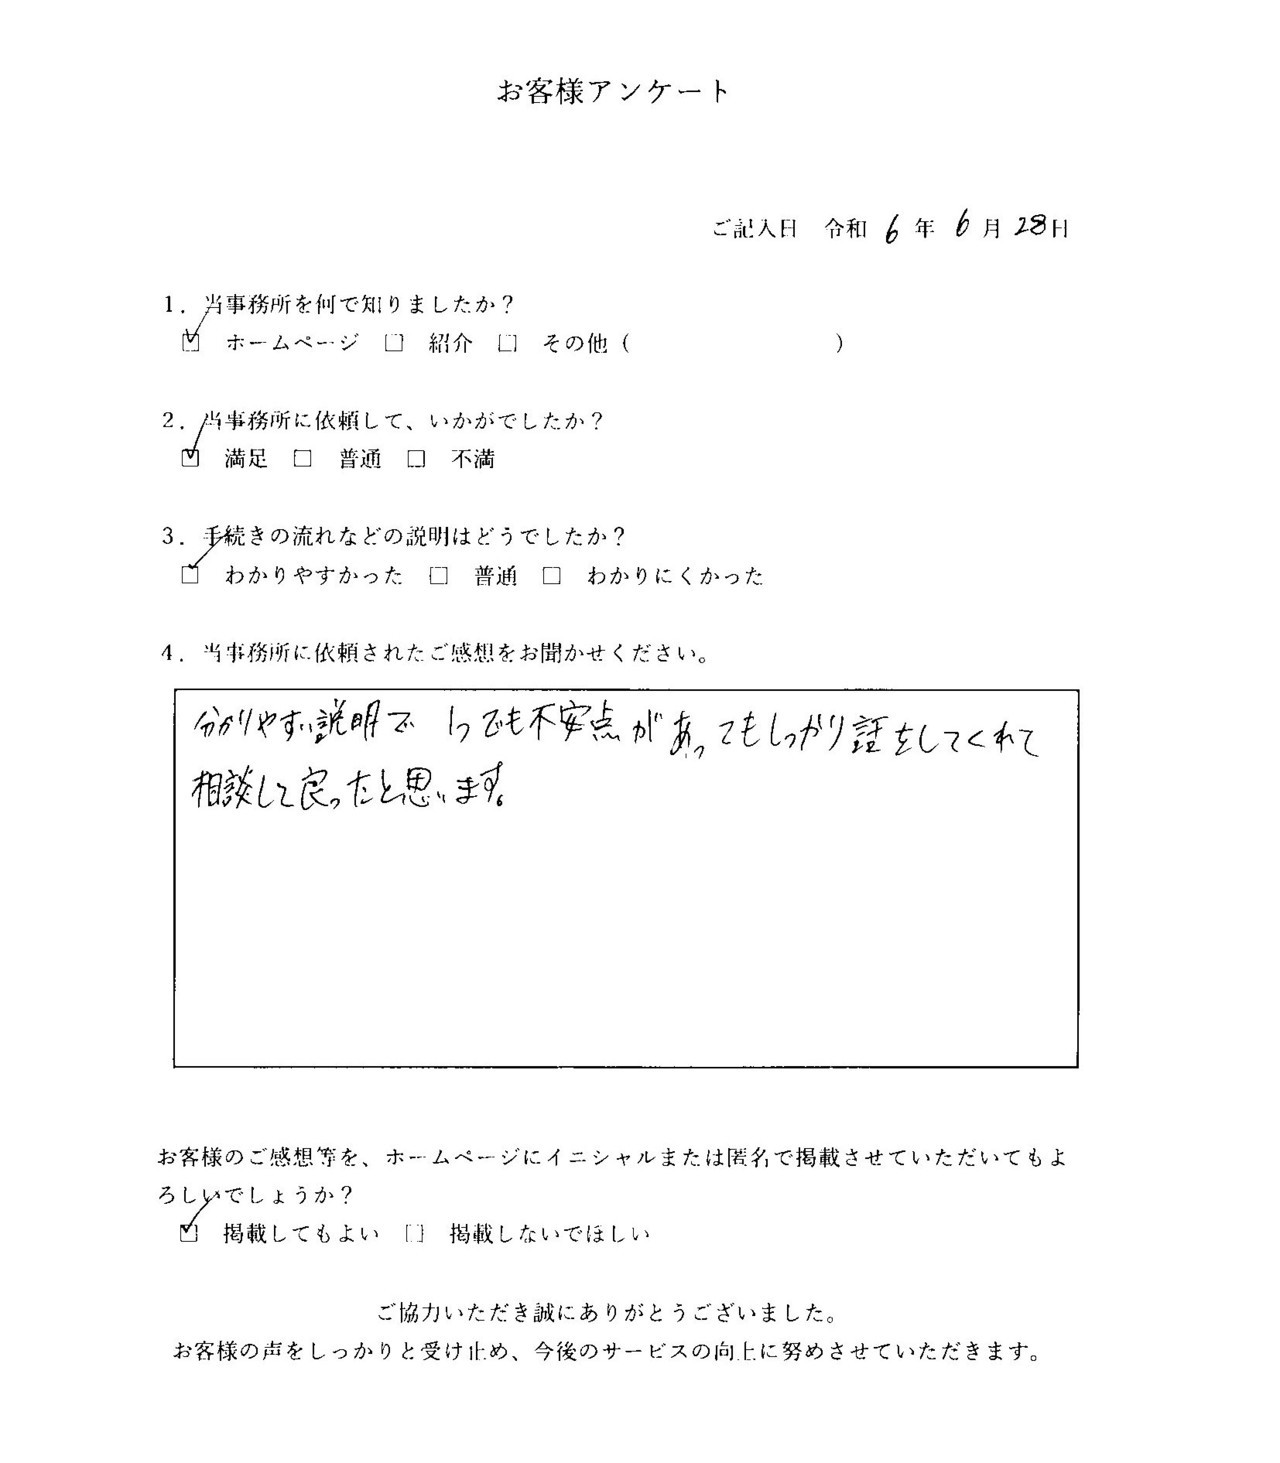 お客様アンケート
ご記入日 令和 6 年 6 月 28日
1．当事務所を何で知りましたか？
☑ ホームページ □ 紹介 □ その他（ ）
2．当事務所に依頼して、いかがでしたか？
☑ 満足 □ 普通 □ 不満
3．手続きの流れなどの説明はどうでしたか？
☑ わかりやすかった □ 普通 □ わかりにくかった
4．当事務所に依頼されたご感想をお聞かせください。
分かりやすい説明で 1つでも不安点があってもしっかり話をしてくれて
相談して良ったと思います。
お客様のご感想等を、ホームページにイニシャルまたは匿名で掲載させていただいてもよ
ろしいでしょうか？
☑ 掲載してもよい □ 掲載しないでほしい
ご協力いただき誠にありがとうございました。
お客様の声をしっかりと受け止め、今後のサービスの向上に努めさせていただきます。